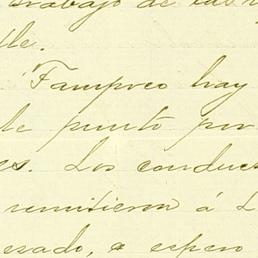 trabajo de las
ble.
Tampoco hay
le punto por
es. Los conduc
remitieron á L
esado, e espero